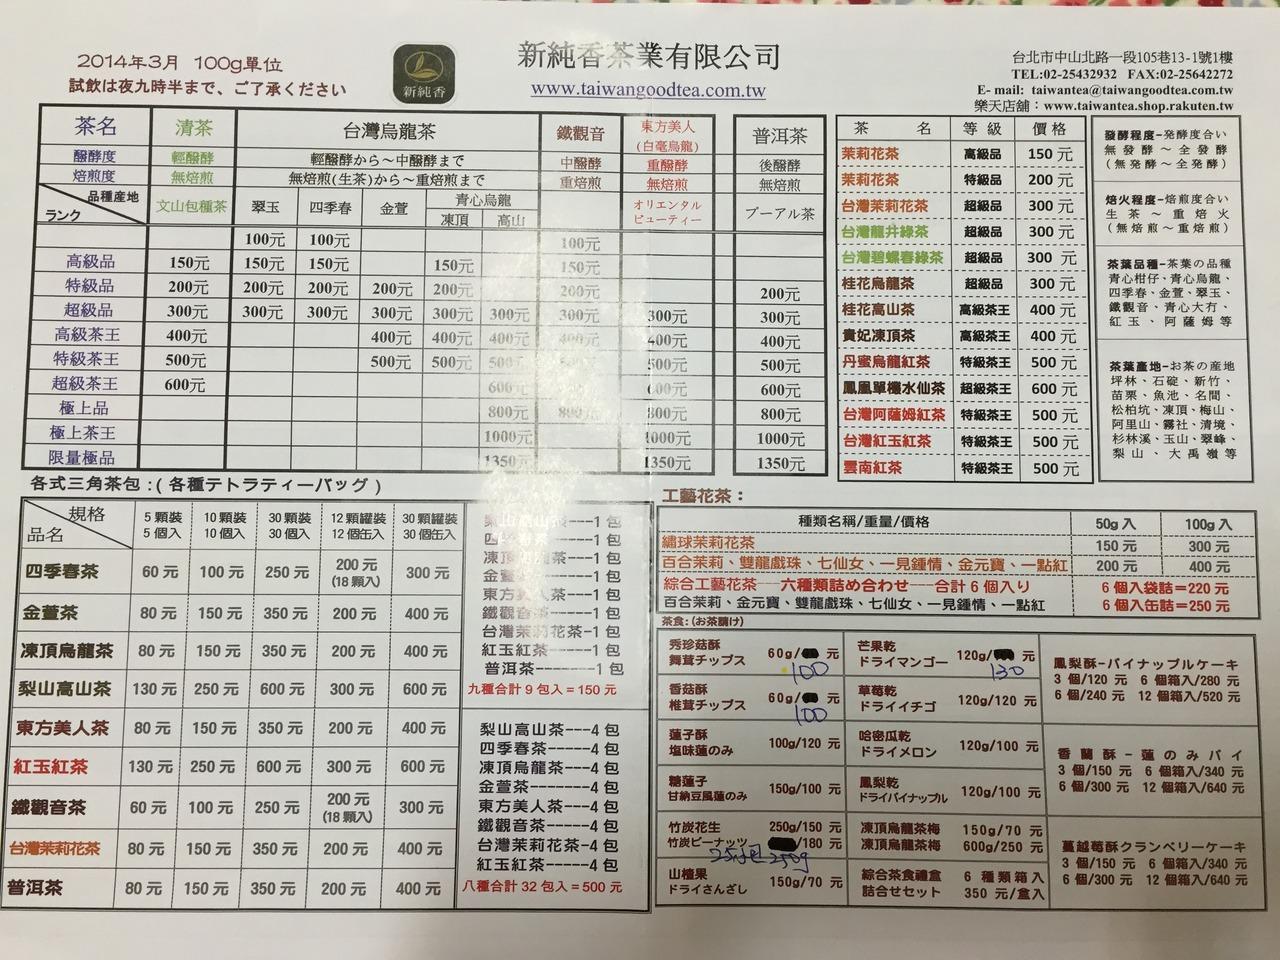 2014年3月 100g單位
試飲は夜九時半まで、ご了承ください
新純香
新純香茶業有限公司
www.taiwangoodtea.com.tw
台北市中山北路一段105巷13-1號1樓
TEL:02-25432932 FAX:02-25642272
E- mail: taiwantea@taiwangoodtea.com.tw
樂天店舖：www.taiwantea.shop.rakuten.tw
茶名 清茶 台灣烏龍茶 鐵觀音 東方美人(白毫烏龍) 普洱茶
醱酵度 輕醱酵 輕醱酵から～中醱酵まで 中醱酵 重醱酵 後醱酵
焙煎度 無焙煎 無焙煎(生茶)から～重焙煎まで 重焙煎 無焙煎 無焙煎
品種產地
ランク
文山包種茶 翠玉 四季春 金萱 青心烏龍 凍頂 高山 オリエンタルビューティー プーアル茶
100元 100元 100元
高級品 150元 150元 150元 150元 150元
特級品 200元 200元 200元 200元 200元 200元 200元
超級品 300元 300元 300元 300元 300元 300元 300元 300元 300元
高級茶王 400元 400元 400元 400元 400元 400元 400元
特級茶王 500元 500元 500元 500元 500元 500元
超級茶王 600元 600元 600元 600元
極上品 800元 800元 800元 800元
極上茶王 1000元 1000元 1000元
限量極品 1350元 1350元 1350元
茶名 等級 價格
茉莉花茶 高級品 150 元
茉莉花茶 特級品 200 元
台灣茉莉花茶 超級品 300 元
台灣龍井綠茶 超級品 300 元
台灣碧螺春綠茶 超級品 300 元
桂花烏龍茶 超級品 300 元
桂花高山茶 高級茶王 400 元
貴妃凍頂茶 高級茶王 400 元
丹蜜烏龍紅茶 特級茶王 500 元
鳳凰單欉水仙茶 超級茶王 600 元
台灣阿薩姆紅茶 特級茶王 500 元
台灣紅玉紅茶 特級茶王 500 元
雲南紅茶 特級茶王 500 元
發酵程度-発酵度合い
無發酵～全發酵
(無発酵～全発酵)
焙火程度-焙煎度合い
生茶～重焙火
(無焙煎～重焙煎)
茶葉品種-茶葉の品種
青心柑仔、青心烏龍、
四季春、金萱、翠玉、
鐵觀音、青心大冇、
紅玉、阿薩姆等
茶葉產地-お茶の産地
坪林、石碇、新竹、
苗栗、魚池、名間、
松柏坑、凍頂、梅山、
阿里山、霧社、清境、
杉林溪、玉山、翠峰、
梨山、大禹嶺等
各式三角茶包：(各種テトラティーバッグ)
規格
品名
5顆裝 10顆裝 30顆裝 12顆罐裝 30顆罐裝
5個入 10個入 30個入 12個缶入 30個缶入
四季春茶 60 元 100 元 250 元 200 元 (18顆入) 300 元
金萱茶 80 元 150 元 350 元 200 元 400 元
凍頂烏龍茶 80 元 150 元 350 元 200 元 400 元
梨山高山茶 130 元 250 元 600 元 300 元 600 元
東方美人茶 80 元 150 元 350 元 200 元 400 元
紅玉紅茶 130 元 250 元 600 元 300 元 600 元
鐵觀音茶 60 元 100 元 250 元 200 元 (18顆入) 300 元
台灣茉莉花茶 80 元 150 元 350 元 200 元 400 元
普洱茶 80 元 150 元 350 元 200 元 400 元
梨山高山茶---1 包
四季春茶-----1 包
凍頂烏龍茶---1 包
金萱茶-------1 包
東方美人茶---1 包
鐵觀音茶-----1 包
台灣茉莉花茶-1 包
紅玉紅茶-----1 包
普洱茶-------1 包
九種合計9包入＝150 元
梨山高山茶---4 包
四季春茶-----4 包
凍頂烏龍茶---4 包
金萱茶-------4 包
東方美人茶---4 包
鐵觀音茶-----4 包
台灣茉莉花茶-4 包
紅玉紅茶-----4 包
八種合計32包入＝500 元
工藝花茶：
種類名稱/重量/價格 50g 入 100g 入
繡球茉莉花茶 150 元 300 元
百合茉莉、雙龍戲珠、七仙女、一見鍾情、金元寶、一點紅 200 元 400 元
綜合工藝花茶——六種類詰め合わせ——合計6個入り 6個入袋詰＝220 元
百合茉莉、金元寶、雙龍戲珠、七仙女、一見鍾情、一點紅 6個入缶詰＝250 元
茶食：(お茶請け)
秀珍菇酥 60g/ 元
舞茸チップス 100
香菇酥 60g/ 元
椎茸チップス 100
蓮子酥 100g/120 元
塩味蓮のみ
糖蓮子 150g/100 元
甘納豆風蓮のみ
竹炭花生 250g/150 元
竹炭ピーナッツ /180 元
250g
山楂果 150g/70 元
ドライさんざし
芒果乾 120g/ 元
ドライマンゴー 130
草莓乾 120g/120 元
ドライイチゴ
哈密瓜乾 120g/100 元
ドライメロン
鳳梨乾 120g/100 元
ドライパイナップル
凍頂烏龍茶梅 150g/70 元
凍頂烏龍茶梅 600g/250 元
綜合茶食禮盒 6種類箱入
詰合せセット 350 元/盒入
鳳梨酥-パイナップルケーキ
3 個/120 元 6 個箱入/280 元
6 個/240 元 12 個箱入/520 元
香蘭酥-蓮のみパイ
3 個/150 元 6 個箱入/340 元
6 個/300 元 12 個箱入/640 元
蔓越莓酥クランベリーケーキ
3 個/150 元 6 個箱入/340 元
6 個/300 元 12 個箱入/640 元